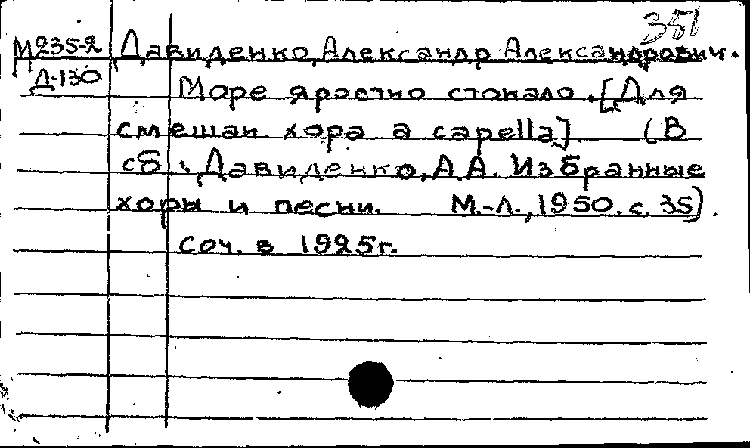 351
М235-2 Давиденко, Александр Александрович.
Д-130 Море яростно стонало. [Для
смешан хора a capella] (В
сб.: Давиденко, А.А. Избранные
хоры и песни. М.-Л., 1950. с. 35).
Соч. в 1925г.